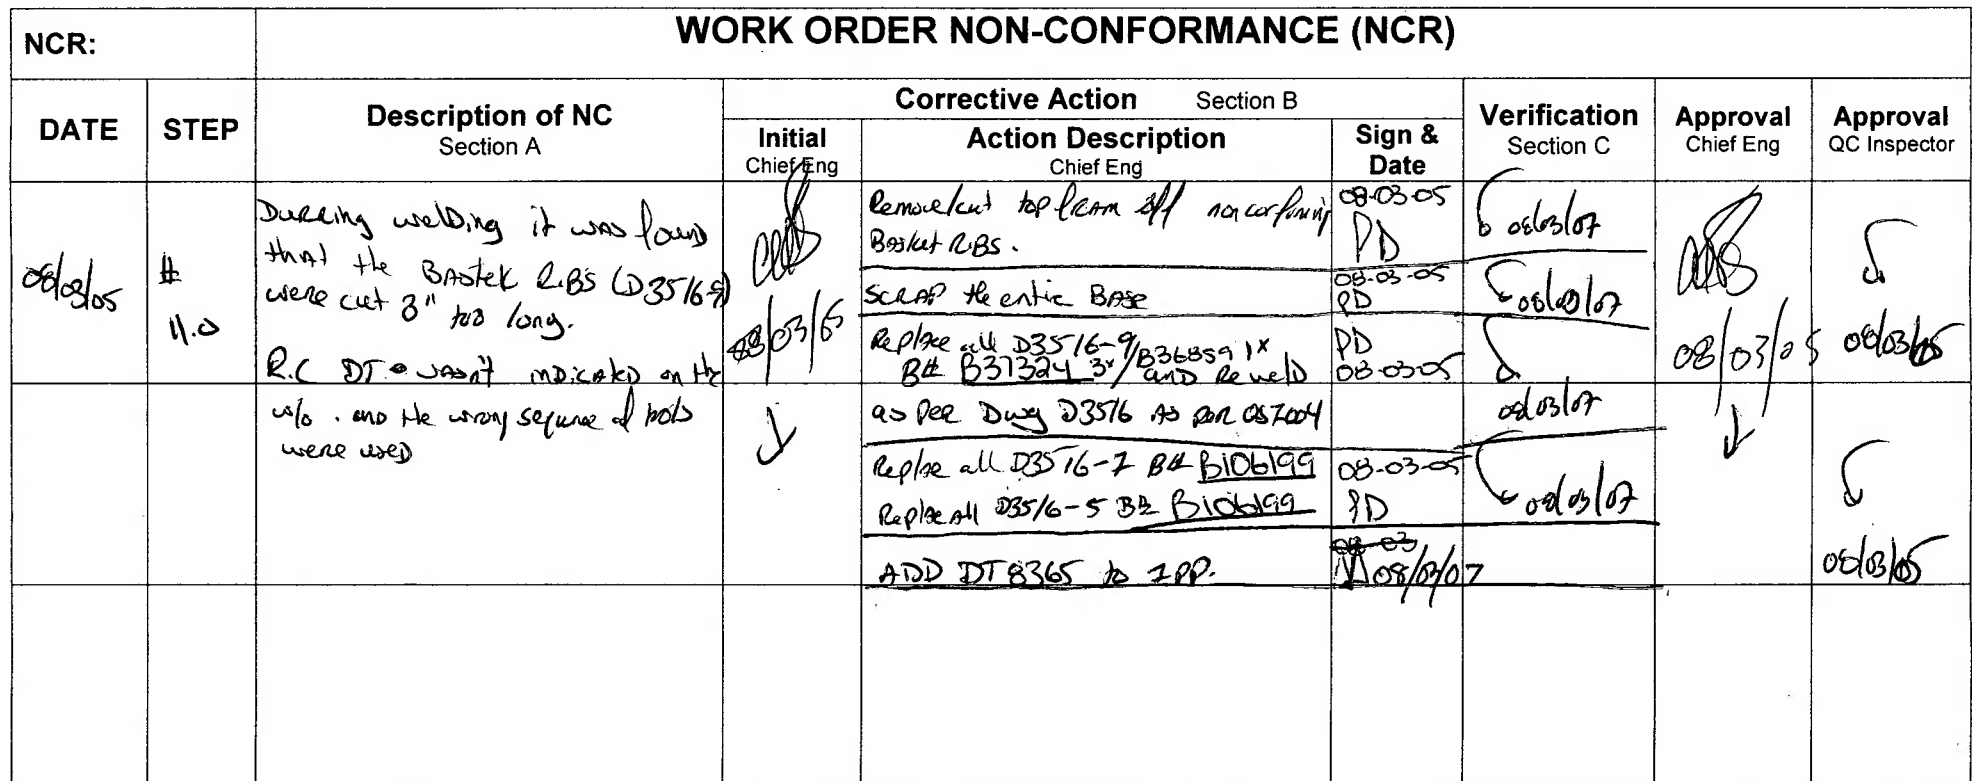 NCR:
WORK ORDER NON-CONFORMANCE (NCR)
DATE
STEP
Description of NC
Section A
Corrective Action Section B
Initial
Chief Eng
Action Description
Chief Eng
Sign &
Date
Verification
Section C
Approval
Chief Eng
Approval
QC Inspector
08/03/05
#
11.0
Durring welding it was found
that the Bastek Ribs (D3516-9)
were cut 3" too long.
R.C DT# wasn't indicated on the
w/o . and the wrong sequence of
were used
08/03/05
Remove/cut top fram off nonconforming
Basket Ribs.
08-03-05
PD
08/03/07
Scrap the entire Base
08-03-05
PD
08/03/07
Replace all D3516-9/B36859 1x
B# B37324 3x/and Reweld
PD
08-03-05
as Per Dwg D3516 As per
08/03/07
Replace all D3516-7 B# B106199
08-03-05
Replace all D3516-5 B# B106199
PD
08/03/07
ADD DT8365 to IPP.
08-03
08/03/07
08/03/05
08/03/05
08/03/05